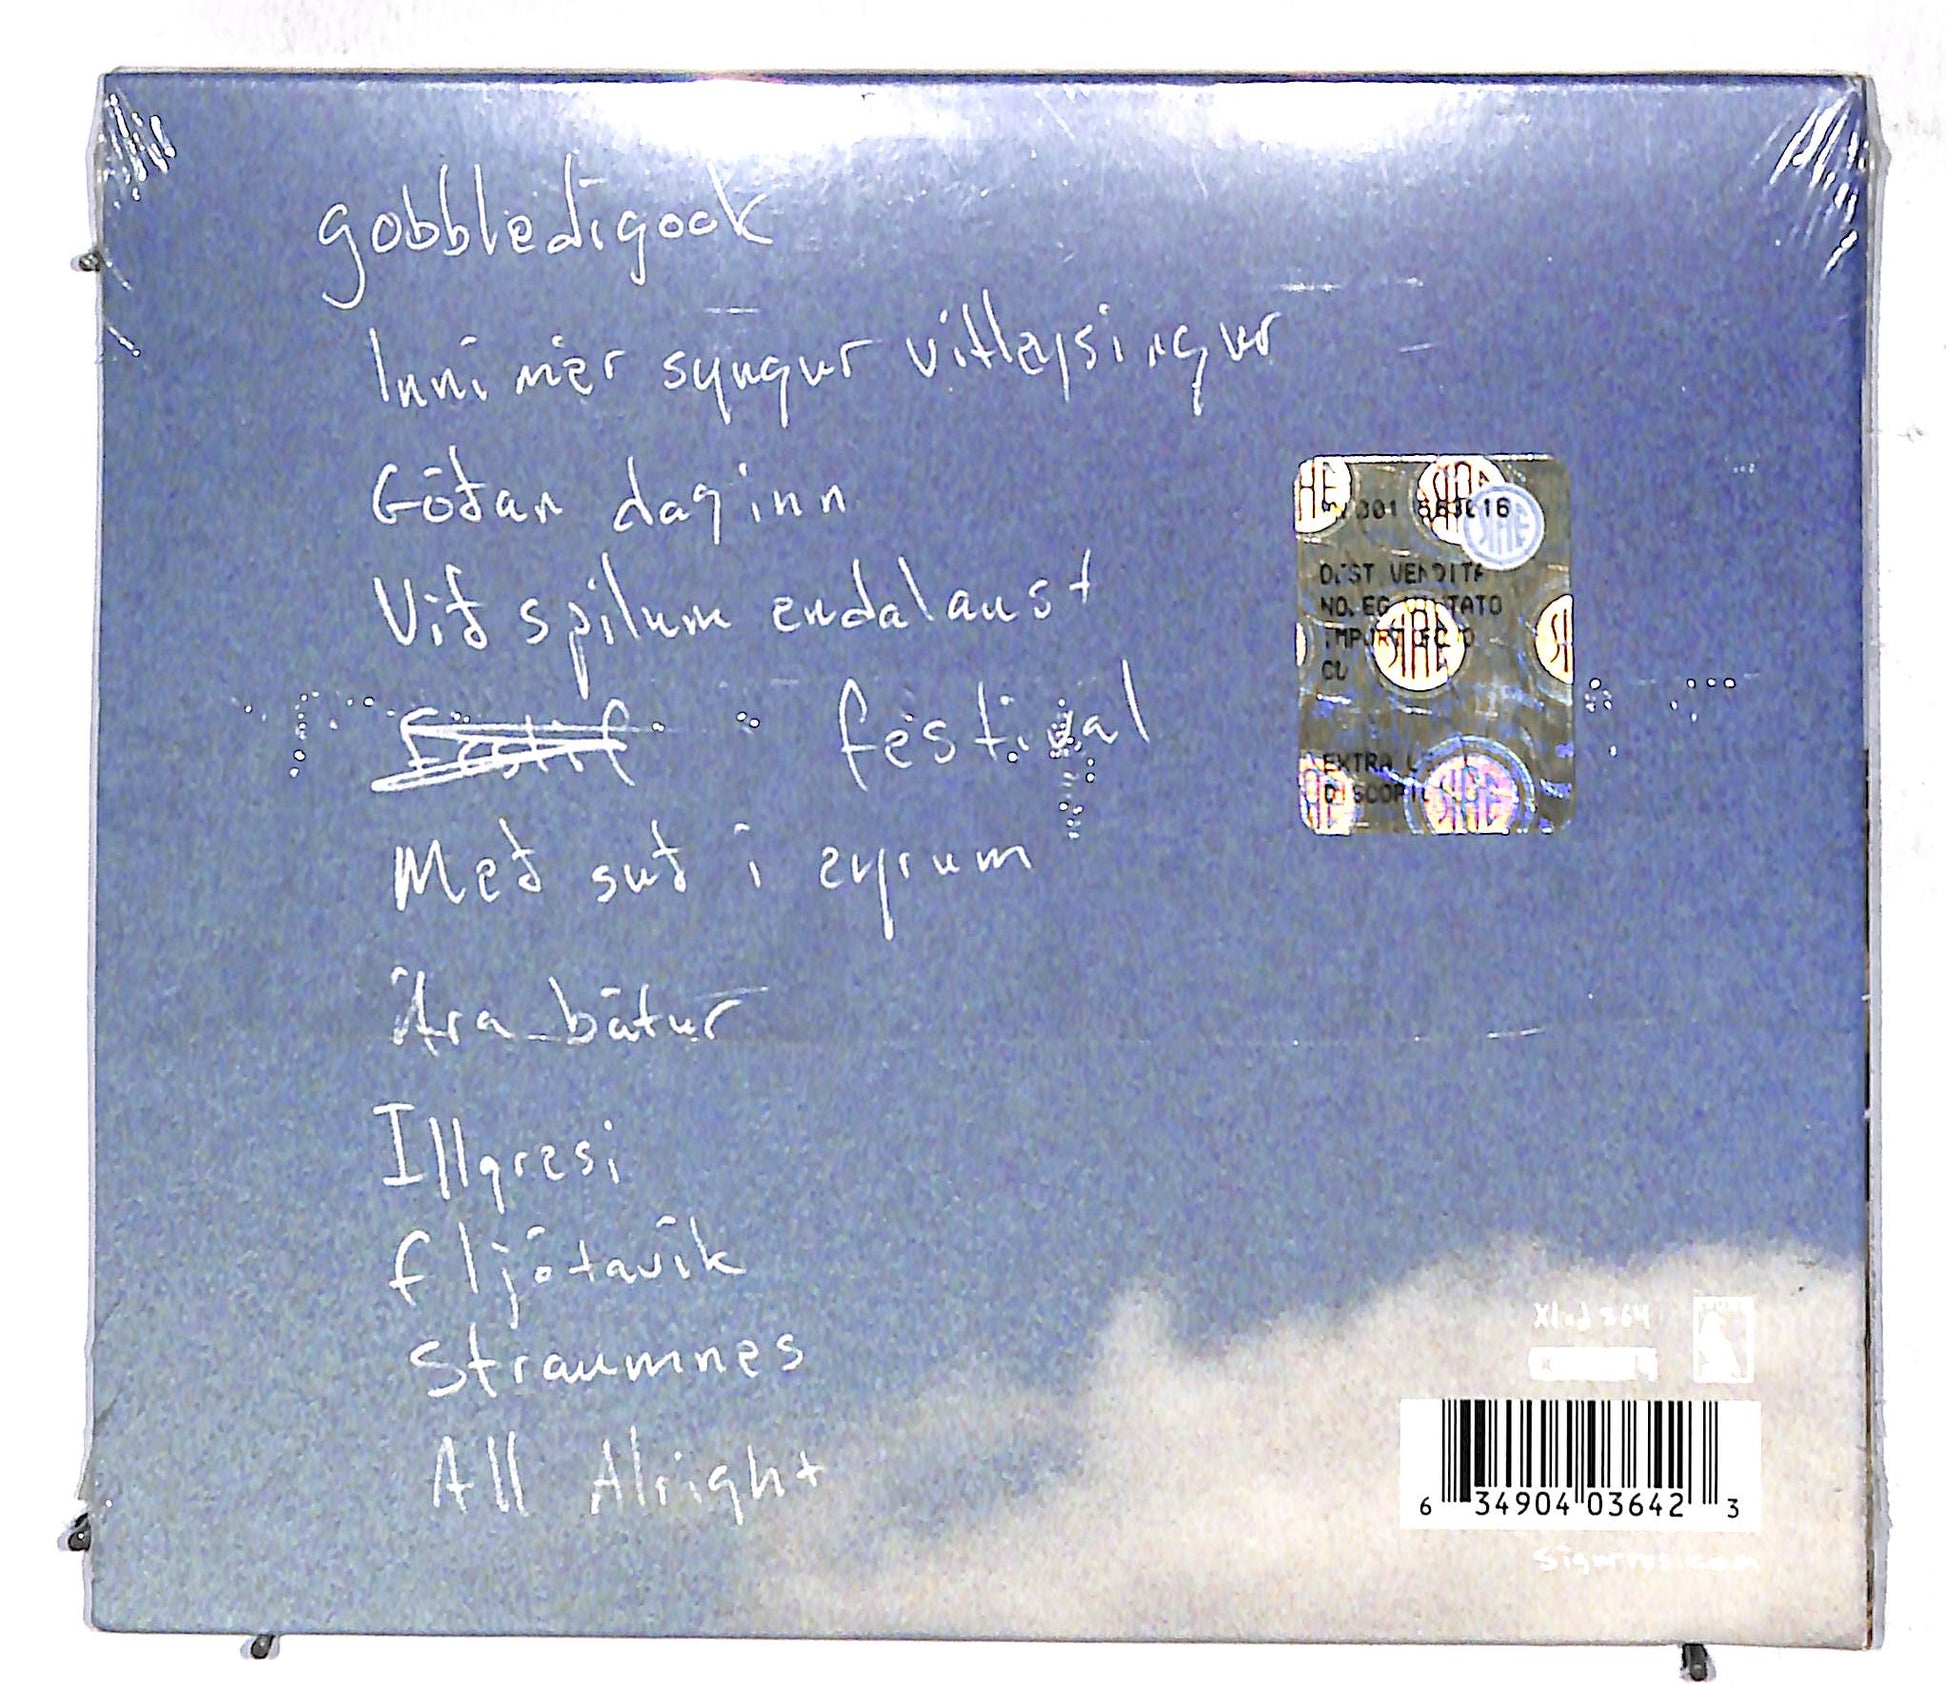 gobbledigook
Inní mér syngur vitleysingur
Góðan daginn
Við spilum endalaust
festival
Með suð í eyrum
Ára bátur
Illgresi
fljótavík
Straumnes
All Alright
SIAE
SIAE
NO.
EXTRA
SIAE
Xlcd 364
6 34904 03642 3
sigurros.com